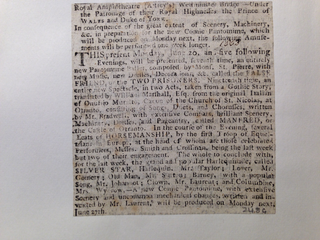 Royal Amphitheatre (Astley's) Westminster Bridge — Under
the Patronage of their Royal Highnesses the Prince of
WALES and Duke of YORK.
In consequence of the great extent of Scenery, Machinery,
&c. in preparation for the new Comic Pantomime, which
will be produced on Monday next, the following Amuse-
ments will be performed one week longer.
THIS present Monday, June 20, and five following
Evenings, will be presented, seventh time, an entirely
new Pantomime Ballet, composed by Mons. St. Pierre, with
new Music, new Dresses, Decorations, &c. called the FAST
FRIEND; or, the TWO PRISONERS. Nineteenth time, an
entire new Spectacle, in two Acts, taken from a Gothic Story;
translated by William Marshall, Esq. from the original Italian
of Onuphrio Muralto, Canon of the Church of St. Nicolas, at
Otranto, consisting of Songs, Duets, and Chorusses, written
by Mr. with extensive Company, brilliant Scenery,
Machinery, Dresses, and Processions, called MANFRED, or
the Castle of Otranto. In the course of the Evening, Several
Feats of HORSEMANSHIP, by the first Troop of Eques-
trians in Europe, at the head of whom are those celebrated
Performers, Messrs. Smith and Crossman, being the last week
but two of their engagement. The whole to conclude with,
for the last week, the grand and popular Harlequinade, called
SILVER STAR. Harlequin, Mr. Taylor; Lover, Mr.
Gomery; Old Man, Mr. Smith; Betty, with a popular
Song, Mr. Johannot; Clown, Mr. Laurent; and Columbine,
Mrs. — A new Comic Pantomime, with extensive
Scenery and uncommon mechanical changes, written and in-
vented by Mr. Laurent, will be produced on Monday next,
June 27th.